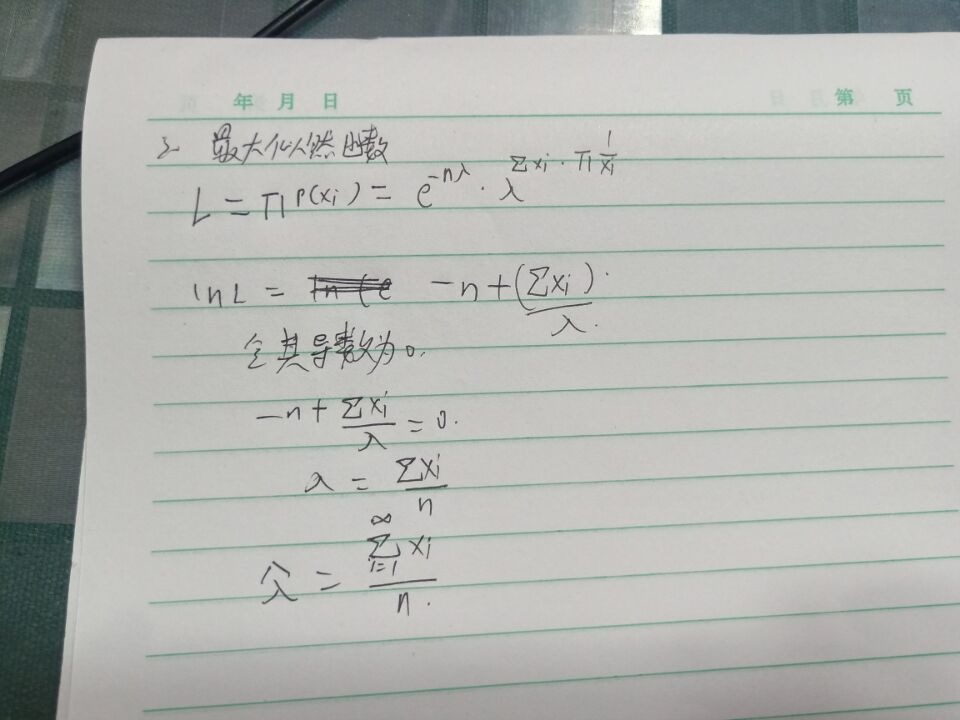 年 月 日 第 页
2. 最大似然函数
L = Π P(xi) = e^{-nλ} · λ^{Σxi · Π 1/xi}
lnL = -n + (Σxi)/λ.
令其导数为0.
-n + Σxi/λ = 0.
λ = Σxi/n
λ̂ = Σ_{i=1}^{∞} xi / n.